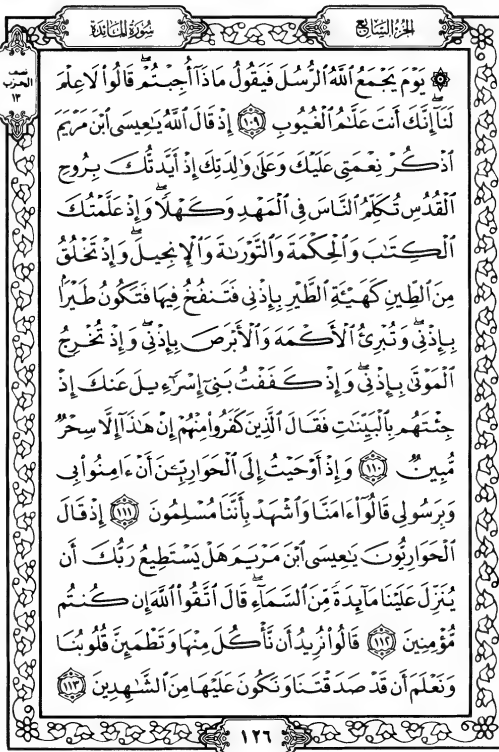 سُورَةُ المَائدَة
الجُزءُ السَّابِع
نصف
الحزب
١٣
۞ يَوْمَ يَجْمَعُ ٱللَّهُ ٱلرُّسُلَ فَيَقُولُ مَاذَآ أُجِبْتُمْۖ قَالُوا۟ لَا عِلْمَ
لَنَآۖ إِنَّكَ أَنتَ عَلَّٰمُ ٱلْغُيُوبِ ١٠٩ إِذْ قَالَ ٱللَّهُ يَٰعِيسَى ٱبْنَ مَرْيَمَ
ٱذْكُرْ نِعْمَتِى عَلَيْكَ وَعَلَىٰ وَٰلِدَتِكَ إِذْ أَيَّدتُّكَ بِرُوحِ
ٱلْقُدُسِ تُكَلِّمُ ٱلنَّاسَ فِى ٱلْمَهْدِ وَكَهْلًاۖ وَإِذْ عَلَّمْتُكَ
ٱلْكِتَٰبَ وَٱلْحِكْمَةَ وَٱلتَّوْرَىٰةَ وَٱلْإِنجِيلَۖ وَإِذْ تَخْلُقُ
مِنَ ٱلطِّينِ كَهَيْـَٔةِ ٱلطَّيْرِ بِإِذْنِى فَتَنفُخُ فِيهَا فَتَكُونُ طَيْرًۢا
بِإِذْنِىۖ وَتُبْرِئُ ٱلْأَكْمَهَ وَٱلْأَبْرَصَ بِإِذْنِىۖ وَإِذْ تُخْرِجُ
ٱلْمَوْتَىٰ بِإِذْنِىۖ وَإِذْ كَفَفْتُ بَنِىٓ إِسْرَٰٓءِيلَ عَنكَ إِذْ
جِئْتَهُم بِٱلْبَيِّنَٰتِ فَقَالَ ٱلَّذِينَ كَفَرُوا۟ مِنْهُمْ إِنْ هَٰذَآ إِلَّا سِحْرٌ
مُّبِينٌ ١١٠ وَإِذْ أَوْحَيْتُ إِلَى ٱلْحَوَارِيِّۦنَ أَنْ ءَامِنُوا۟ بِى
وَبِرَسُولِى قَالُوٓا۟ ءَامَنَّا وَٱشْهَدْ بِأَنَّنَا مُسْلِمُونَ ١١١ إِذْ قَالَ
ٱلْحَوَارِيُّونَ يَٰعِيسَى ٱبْنَ مَرْيَمَ هَلْ يَسْتَطِيعُ رَبُّكَ أَن
يُنَزِّلَ عَلَيْنَا مَآئِدَةً مِّنَ ٱلسَّمَآءِۖ قَالَ ٱتَّقُوا۟ ٱللَّهَ إِن كُنتُم
مُّؤْمِنِينَ ١١٢ قَالُوا۟ نُرِيدُ أَن نَّأْكُلَ مِنْهَا وَتَطْمَئِنَّ قُلُوبُنَا
وَنَعْلَمَ أَن قَدْ صَدَقْتَنَا وَنَكُونَ عَلَيْهَا مِنَ ٱلشَّٰهِدِينَ ١١٣
١٢٦